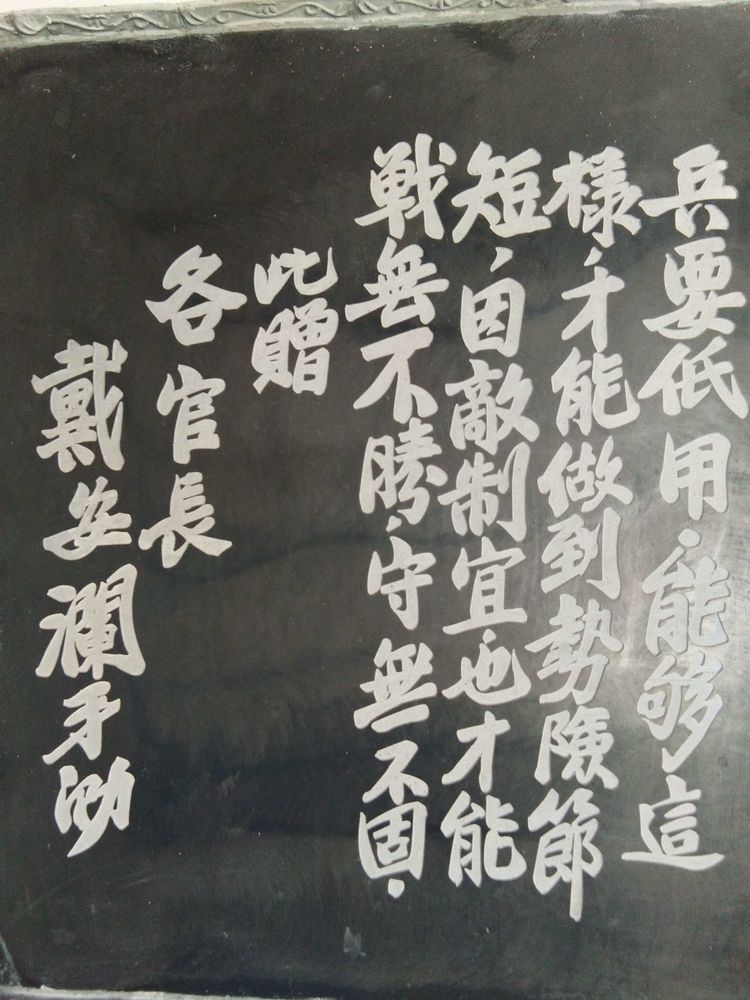 兵要低用，能够這
樣，才能做到勢險節
短，因敵制宜也才能
戦無不勝，守無不固。
此贈
各官長
戴安瀾手泐